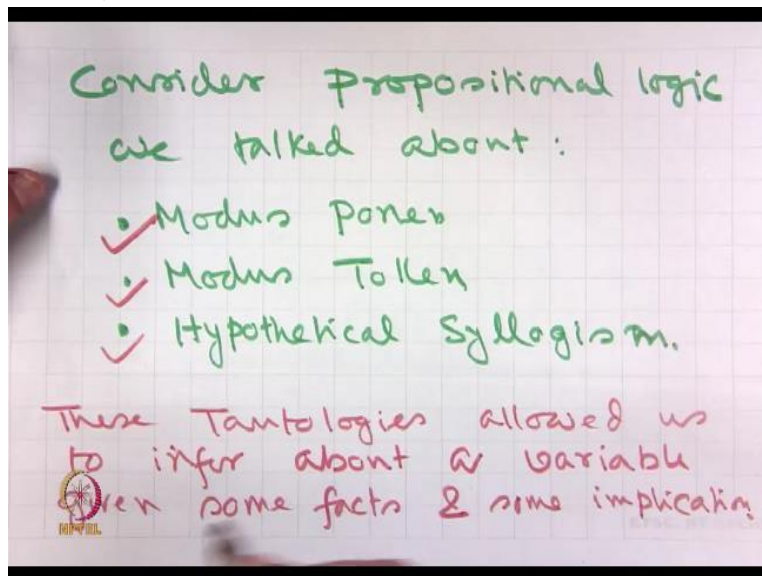 Consider Propositional logic
we talked about :
• Modus Ponen
• Modus Tollen
• Hypothetical Syllogism.
These Tautologies allowed us
to infer about a variable
given some facts & some implication
NPTEL